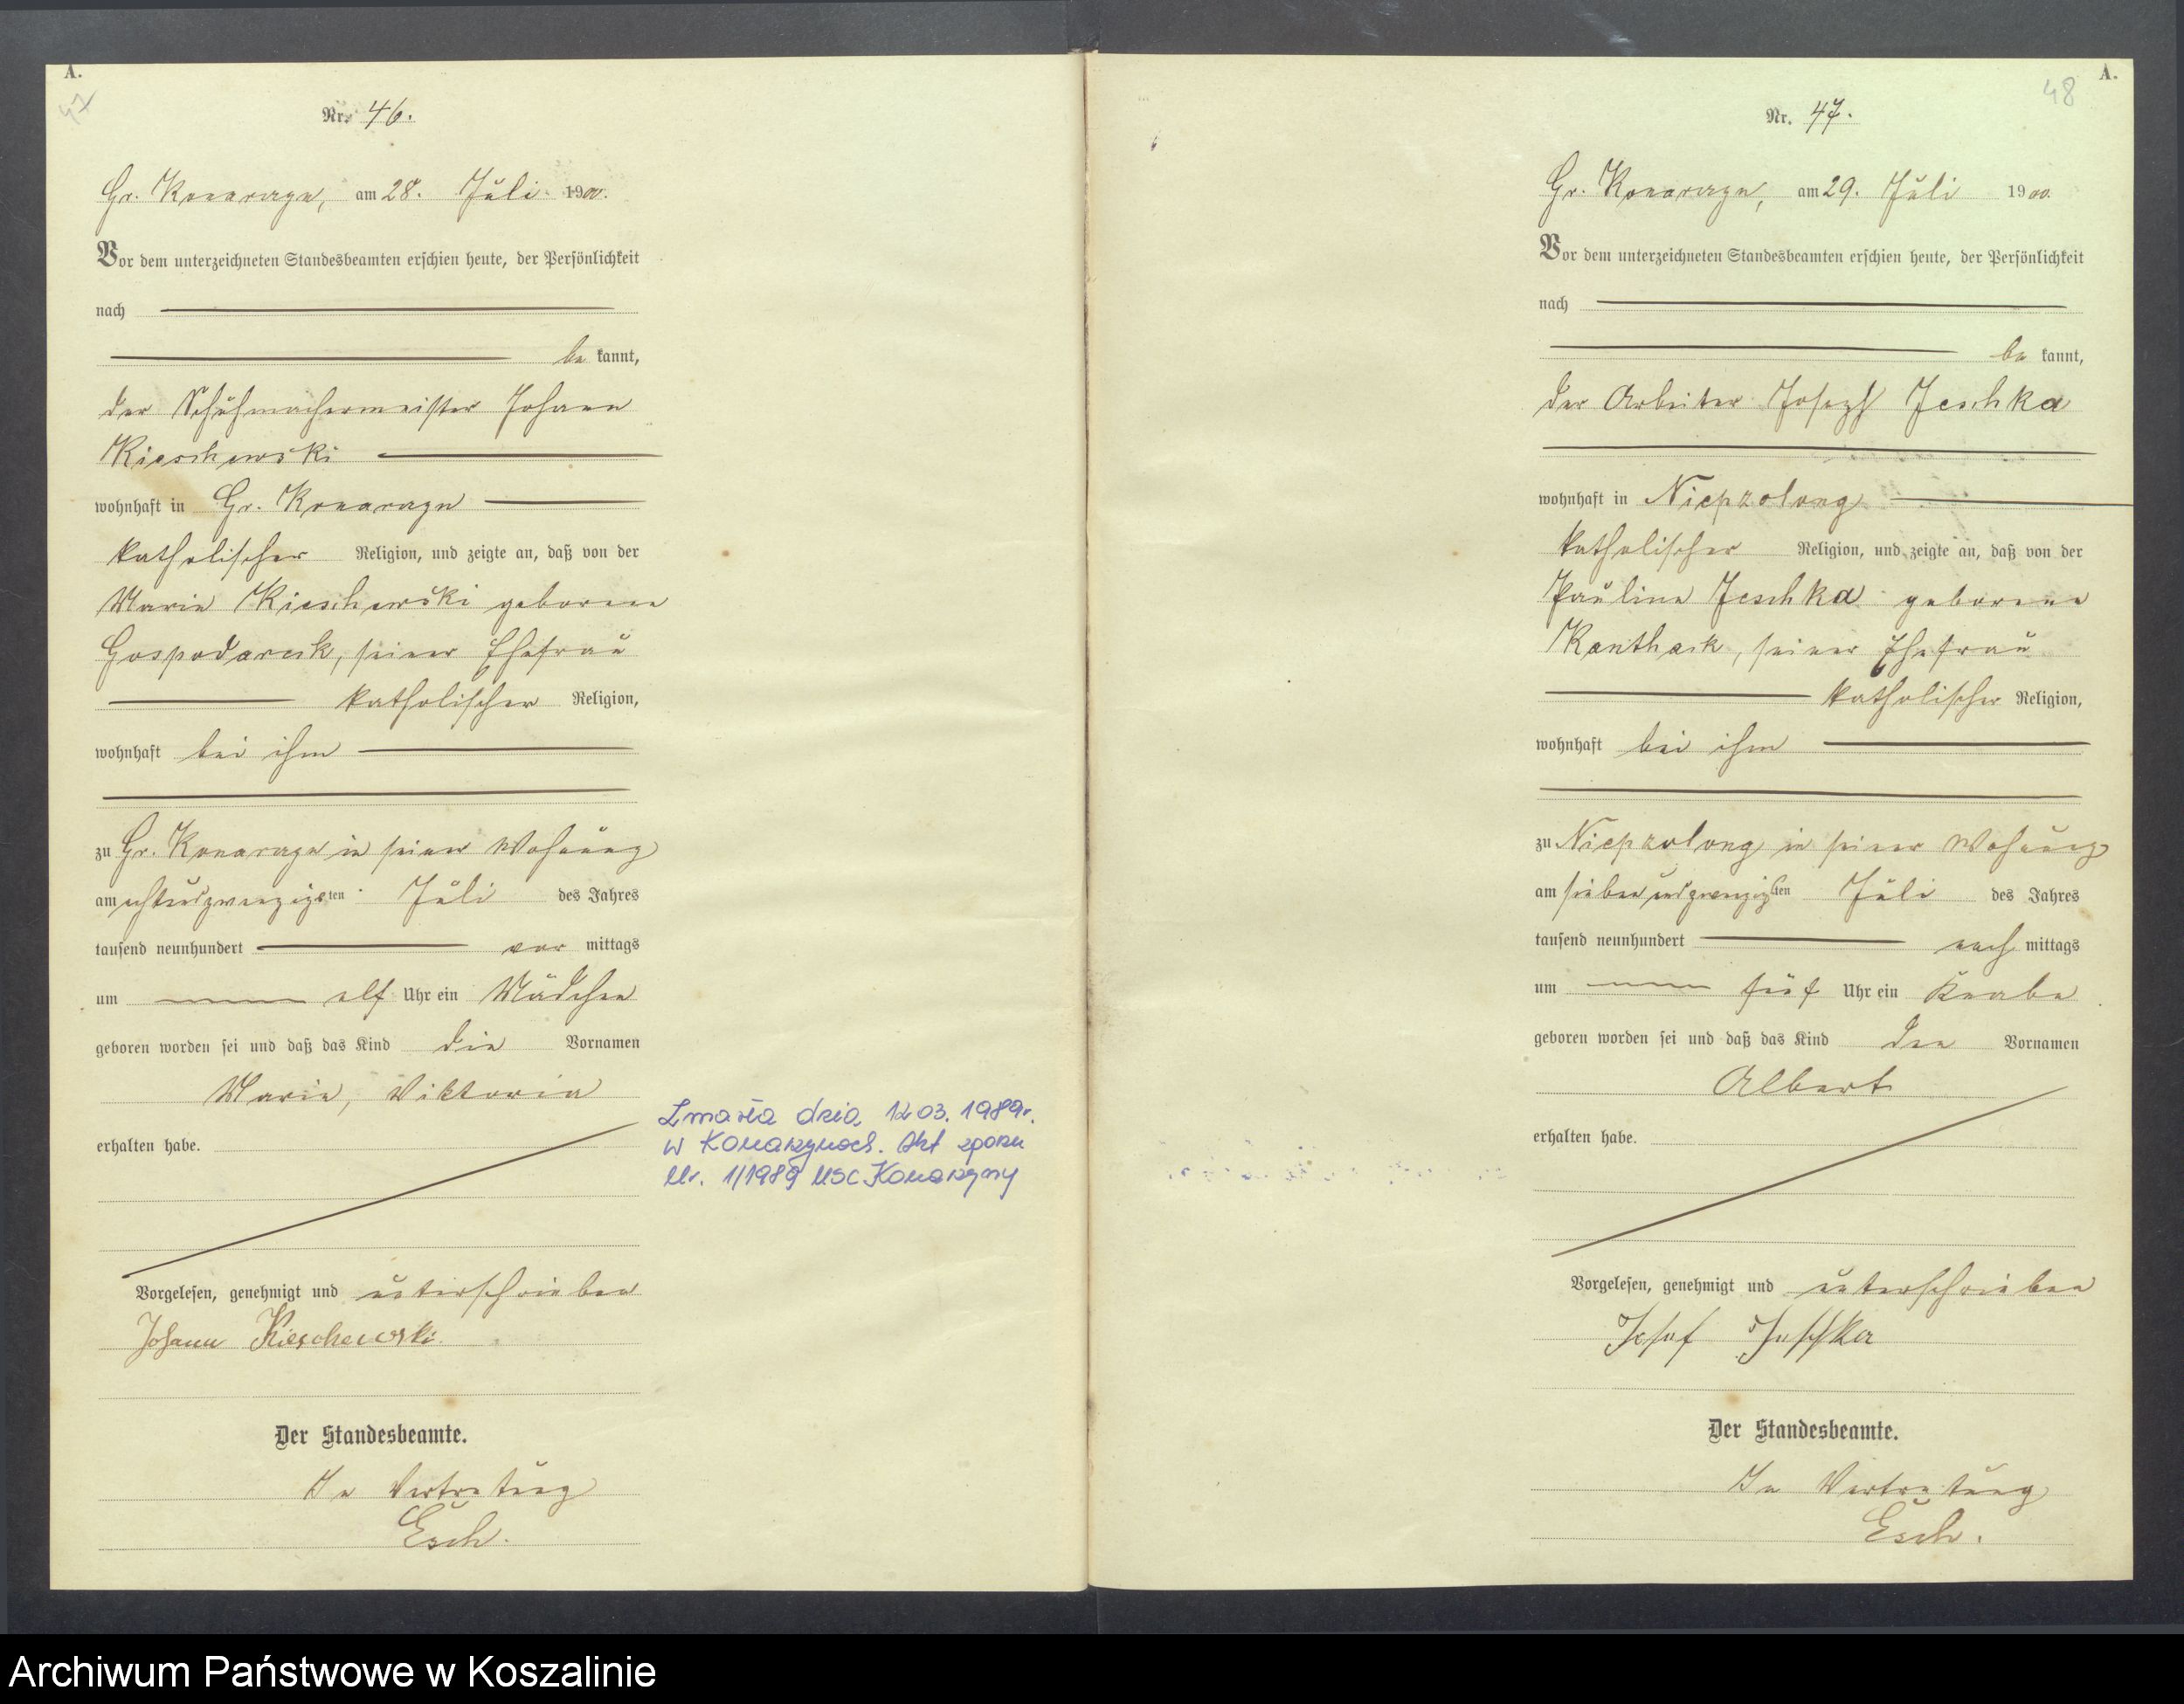 A.
47
Nr. 46.
Gr. Konarczyn, am 28. Juli 1900.
Vor dem unterzeichneten Standesbeamten erschien heute, der Persönlichkeit
nach
be kannt,
der Schuhmachermeister Johann
Kieschewski
wohnhaft in Gr. Konarczyn
katholischer Religion, und zeigte an, daß von der
Marie Kieschewski geborene
Gospodareck, seiner Ehefrau
katholischer Religion,
wohnhaft bei ihm
zu Gr. Konarczyn in seiner Wohnung
am achtundzwanzigsten Juli des Jahres
tausend neunhundert vor mittags
um elf Uhr ein Mädchen
geboren worden sei und daß das Kind die Vornamen
Marie, Viktoria
erhalten habe.
Zmarła dnia 12 03. 1989r.
w Konarzynach. Akt zgonu
Nr. 1/1989 USC Konarzyny
Vorgelesen, genehmigt und unterschrieben
Johann Kieschewski
Der Standesbeamte.
In Vertretung
Esch.
A.
48
Nr. 47.
Gr. Konarczyn, am 29. Juli 1900.
Vor dem unterzeichneten Standesbeamten erschien heute, der Persönlichkeit
nach
be kannt,
der Arbeiter Joseph Jeschka
wohnhaft in Niepzolong
katholischer Religion, und zeigte an, daß von der
Pauline Jeschka geborene
Kanthack, seiner Ehefrau
katholischer Religion,
wohnhaft bei ihm
zu Niepzolong in seiner Wohnung
am siebenundzwanzigsten Juli des Jahres
tausend neunhundert nach mittags
um fünf Uhr ein Knabe
geboren worden sei und daß das Kind den Vornamen
Albert
erhalten habe.
Vorgelesen, genehmigt und unterschrieben
Josef Jeschka
Der Standesbeamte.
In Vertretung
Esch.
Archiwum Państwowe w Koszalinie